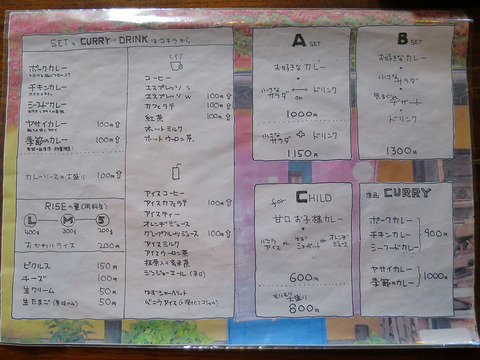 SETの CURRY・DRINK はコチラから
ポークカレー
チキンカレー
シーフードカレー
ヤサイカレー 100円UP
季節のカレー 100円UP
カレーソースの大盛り 100円UP
RISEの量(同料金)
L M S
400g 300g 200g
おかわりライス 200円
ピクルス 150円
チーズ 100円
生クリーム 50円
生たまご 50円
コーヒー
エスプレッソ S
エスプレッソ W 100円UP
カフェラテ 100円UP
紅茶 100円UP
ホットミルク
ホットウーロン茶
アイスコーヒー
アイスカフェラテ 100円UP
アイスティー
オレンジジュース
グレープフルーツジュース 100円UP
アイスミルク
アイスウーロン茶
抹茶入り玄米茶
ジンジャーエール(辛口)
ゆずシャーベット
バニラアイス
A SET
お好きなカレー
+
小さなサラダ or ドリンク
1000円
小さなサラダ + ドリンク
1,150円
B SET
お好きなカレー
小さなサラダ
デザート
ドリンク
1300円
for CHILD
甘口お子様カレー
バニラアイス or or オレンジジュース
600円
大盛り
800円
単品 CURRY
ポークカレー
チキンカレー 900円
シーフードカレー
ヤサイカレー 1000円
季節のカレー